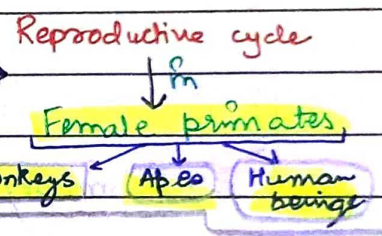 Reproductive cycle
in
Female primates
onkeys Apes Human
beings